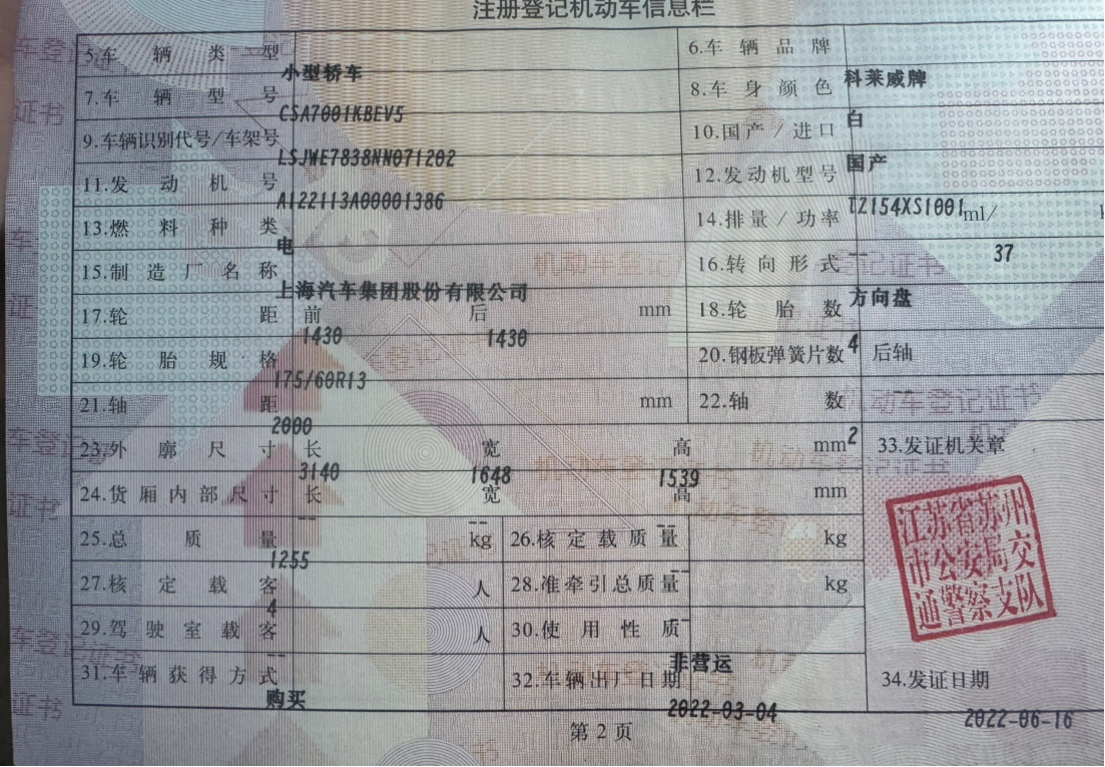 注册登记机动车信息栏
5.车辆类型 小型轿车 6.车辆品牌 科莱威牌
7.车辆型号 CSA7001KBEV5 8.车身颜色 白
9.车辆识别代号/车架号 LSJWE7838NN071202 10.国产/进口 国产
11.发动机号 A122113A00001386 12.发动机型号 TZ154XS1001
13.燃料种类 电 14.排量/功率 -- ml/ 37
15.制造厂名称 上海汽车集团股份有限公司 16.转向形式 方向盘
17.轮距 前 1430 后 1430 mm 18.轮胎数 4
19.轮胎规格 175/60R13 20.钢板弹簧片数 后轴 --
21.轴距 2000 mm 22.轴数 2
23.外廓尺寸 长 3140 宽 1648 高 1539 mm 33.发证机关章
24.货厢内部尺寸 长 -- 宽 -- 高 -- mm
江苏省苏州
市公安局交
通警察支队
25.总质量 1255 kg 26.核定载质量 -- kg
27.核定载客 4 人 28.准牵引总质量 -- kg
29.驾驶室载客 -- 人 30.使用性质 非营运
31.车辆获得方式 购买 32.车辆出厂日期 2022-03-04 34.发证日期 2022-06-16
第2页